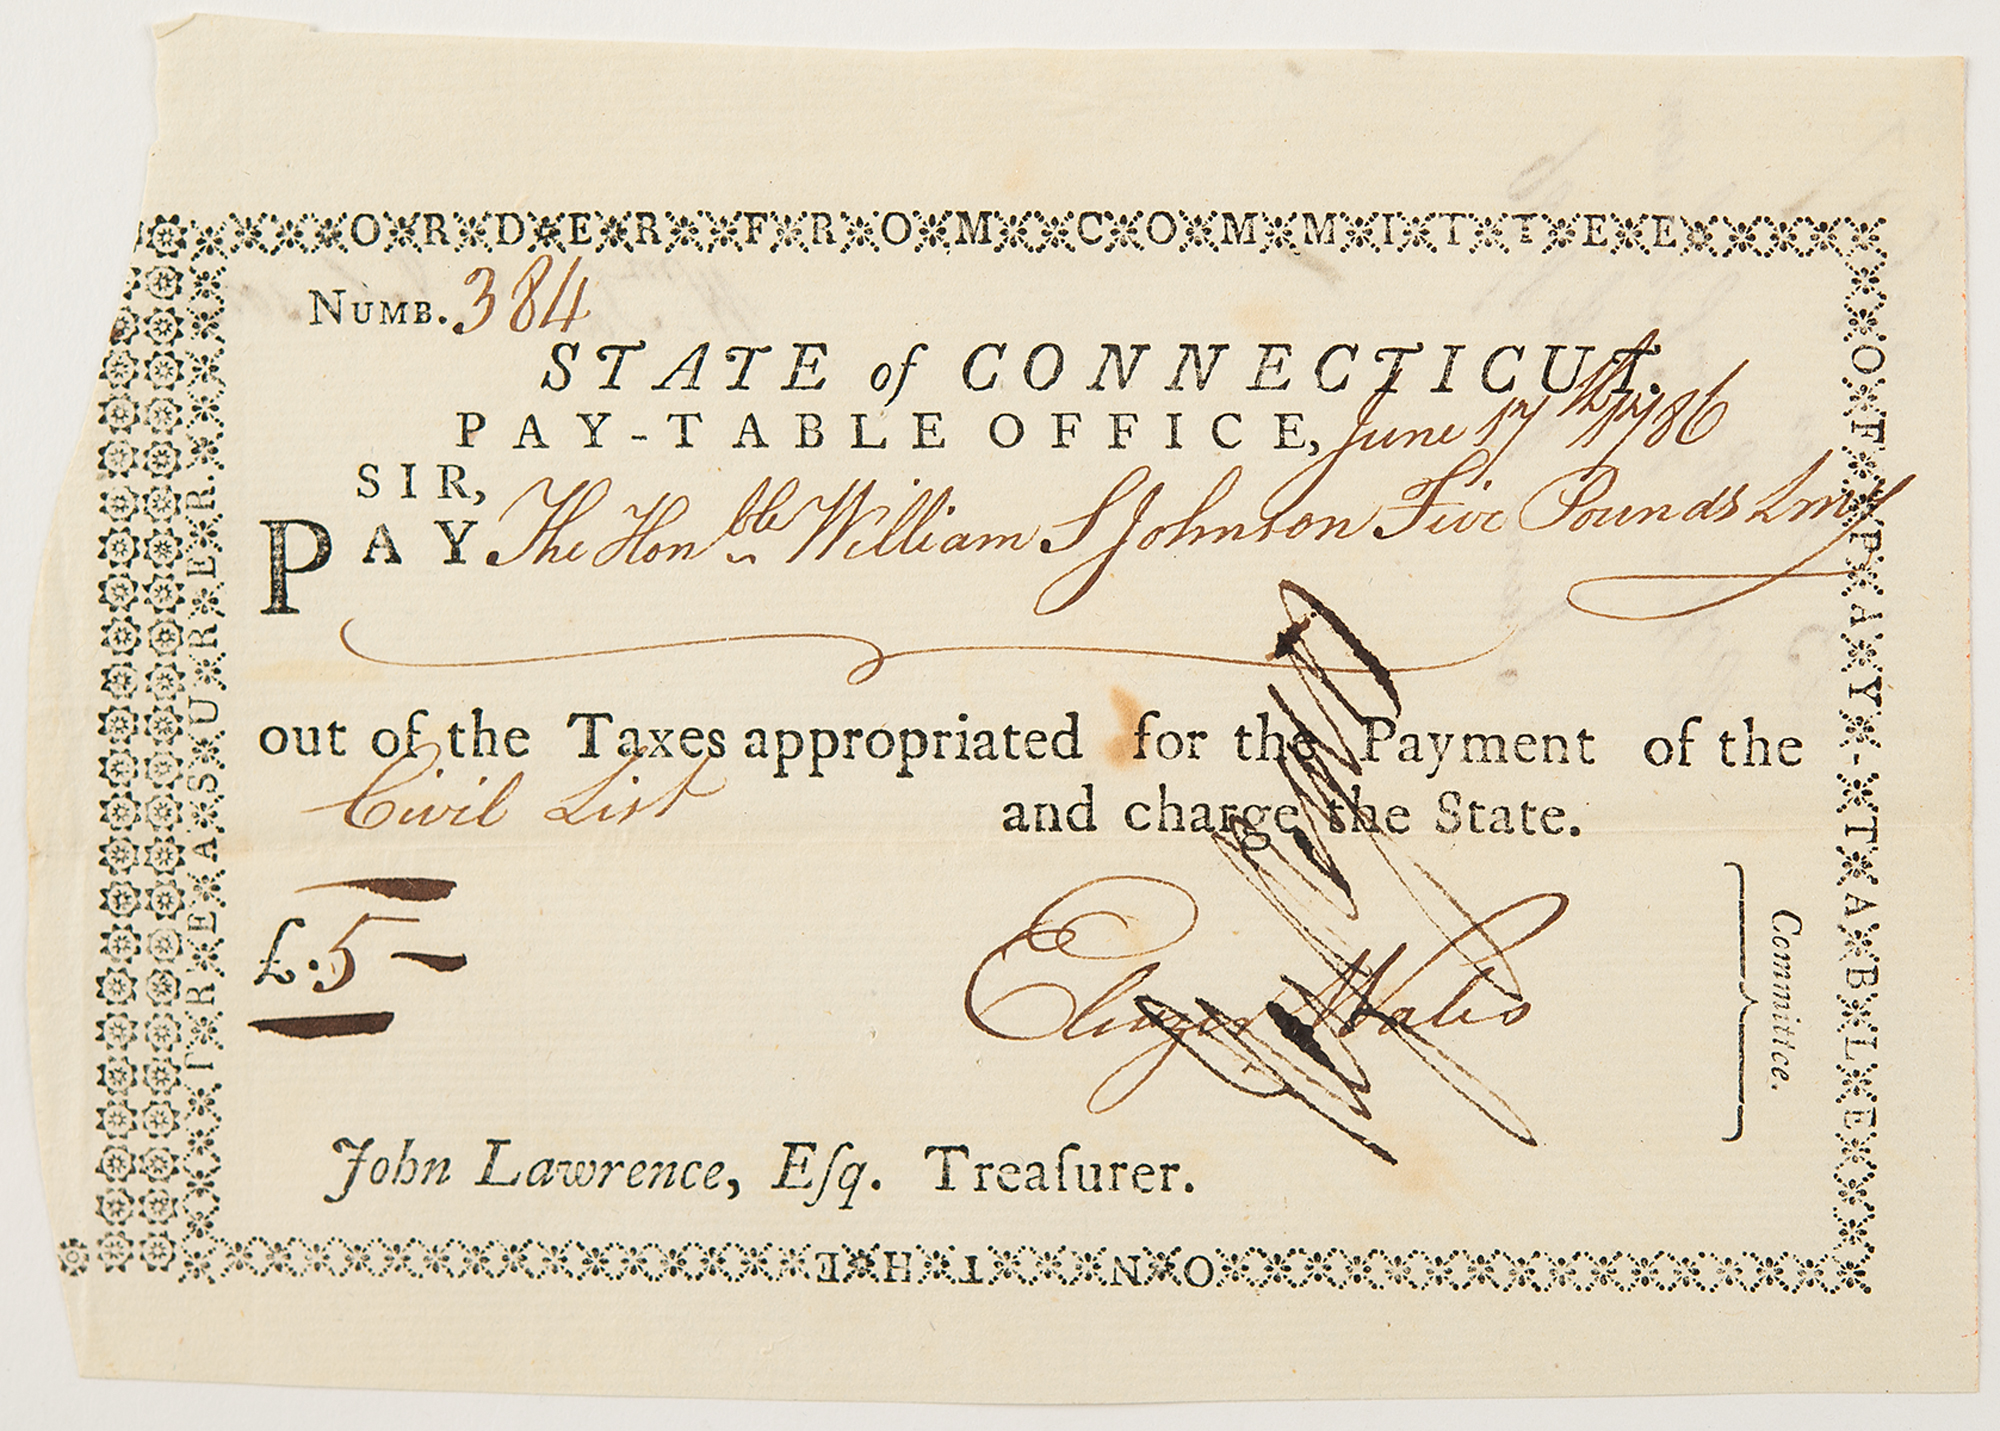 ORDER FROM COMMITTEE
OF PAY-TABLE
ON THE
TREASURER.
NUMB. 384
STATE of CONNECTICUT.
PAY-TABLE OFFICE, June 17th 1786
SIR,
PAY The Honble William S Johnson Five Pounds Lmy
out of the Taxes appropriated for the Payment of the
Civil List and charge the State.
£.5-
Eliezer Wales
Committee.
John Lawrence, Eſq. Treaſurer.